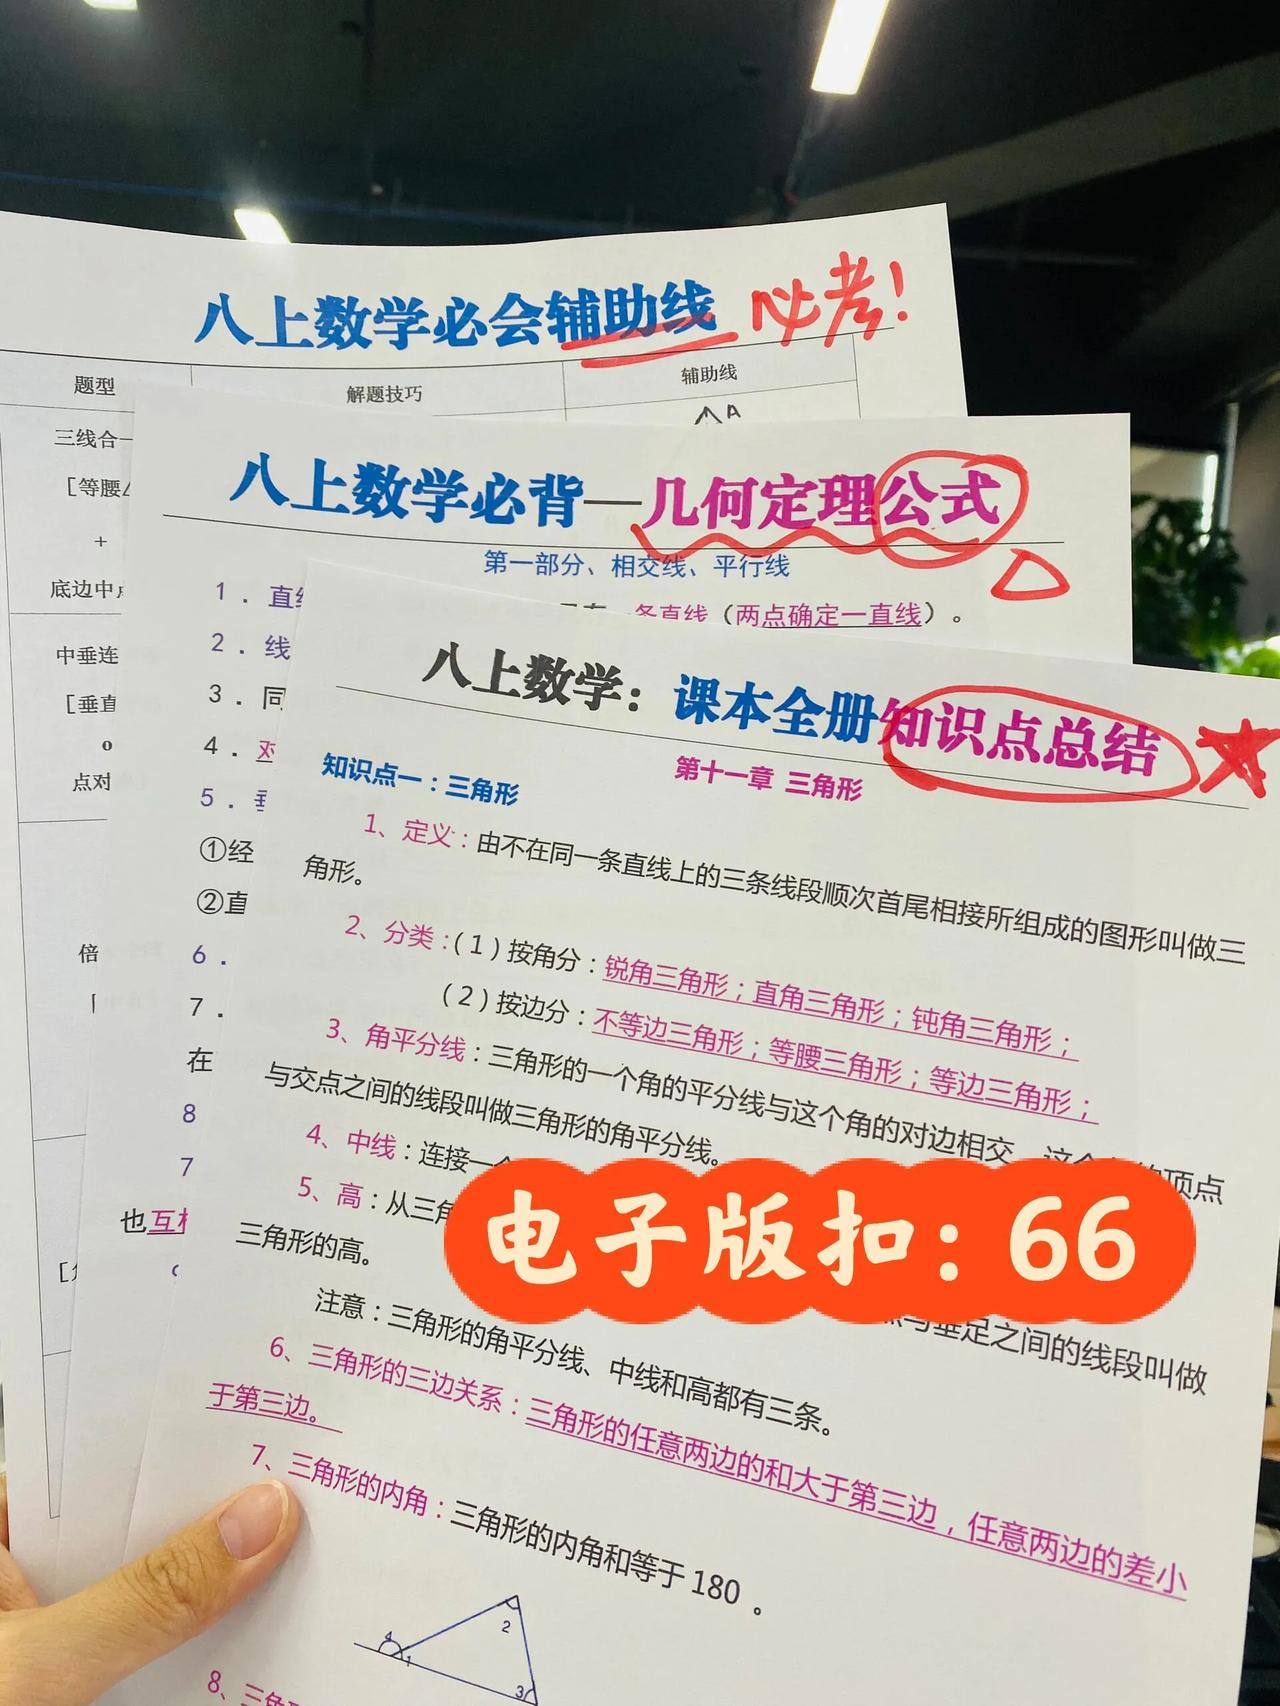 八上数学必会辅助线 必考!
题型 解题技巧 辅助线
三线合一
[等腰
+
底边中点
中垂连
[垂直
点对
倍
A
八上数学必背—几何定理公式
第一部分、相交线、平行线
1．直线
条直线（两点确定一直线）。
2．线
3．同
4．对
5．垂
①经
②直
6．
7．
在
8
7
也互相
八上数学：课本全册知识点总结
第十一章 三角形
知识点一：三角形
1、定义：由不在同一条直线上的三条线段顺次首尾相接所组成的图形叫做三
角形。
2、分类：（1）按角分：锐角三角形；直角三角形；钝角三角形；
（2）按边分：不等边三角形；等腰三角形；等边三角形；
3、角平分线：三角形的一个角的平分线与这个角的对边相交，这个角的顶点
与交点之间的线段叫做三角形的角平分线。
4、中线：连接一个
5、高：从三角
点与垂足之间的线段叫做
三角形的高。
电子版扣：66
注意：三角形的角平分线、中线和高都有三条。
6、三角形的三边关系：三角形的任意两边的和大于第三边，任意两边的差小
于第三边。
7、三角形的内角：三角形的内角和等于180 。
4 1 2 3
8、三角